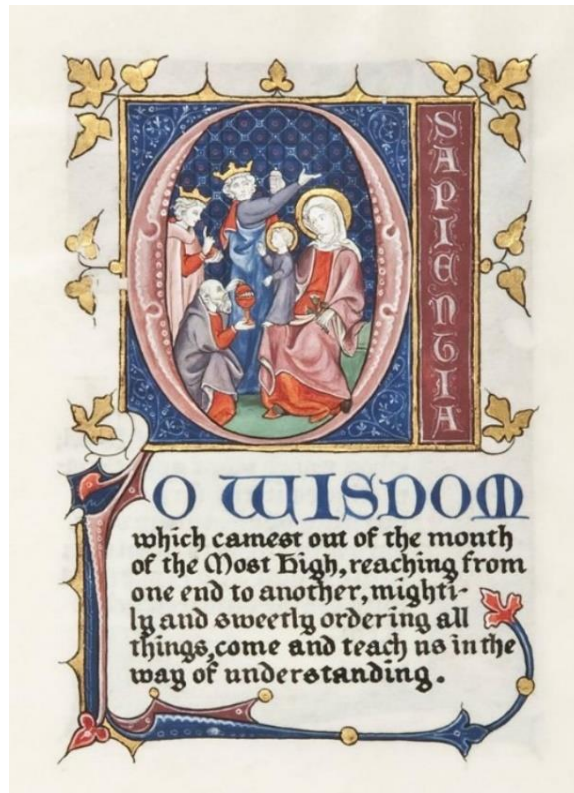 O
SAPIENTIA
O WISDOM
which camest out of the mouth
of the Most High, reaching from
one end to another, mighti-
ly and sweetly ordering all
things, come and teach us in the
way of understanding.